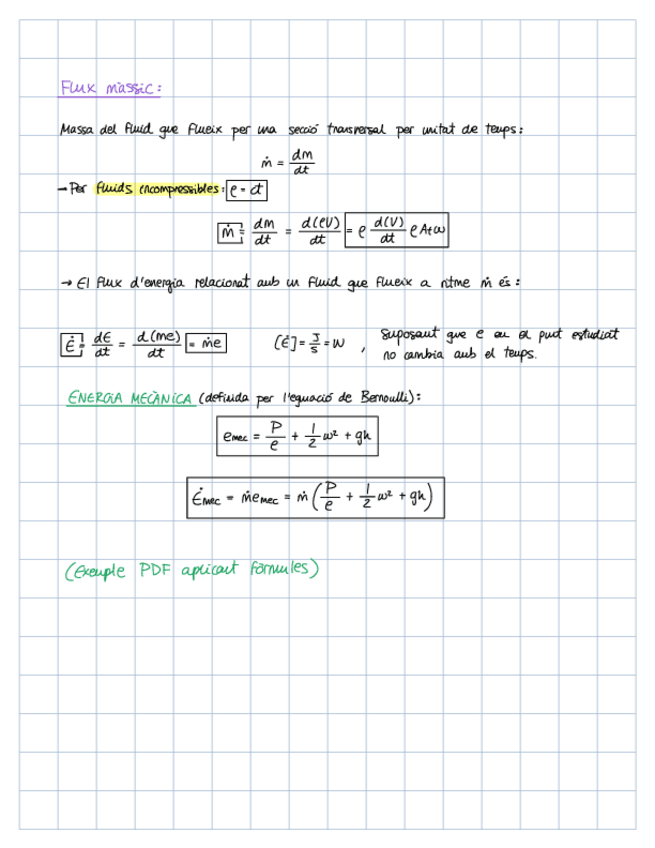 Flux màssic:
Massa del fluid que flueix per una secció transversal per unitat de temps:
ṁ = dm/dt
→ Per fluids incompressibles: ρ = ct
ṁ = dm/dt = d(ρV)/dt = ρ d(V)/dt ρ A t ω
→ El flux d'energia relacionat amb un fluid que flueix a ritme ṁ és:
Ė = dE/dt = d(me)/dt = ṁe [Ė] = J/s = W , Suposant que e en el punt estudiat
no cambia amb el temps.
ENERGIA MECÀNICA (definida per l'equació de Bernoulli):
e_mec = P/ρ + 1/2 ω² + gh
Ė_mec = ṁe_mec = ṁ (P/ρ + 1/2 ω² + gh)
(Exemple PDF aplicant fòrmules)